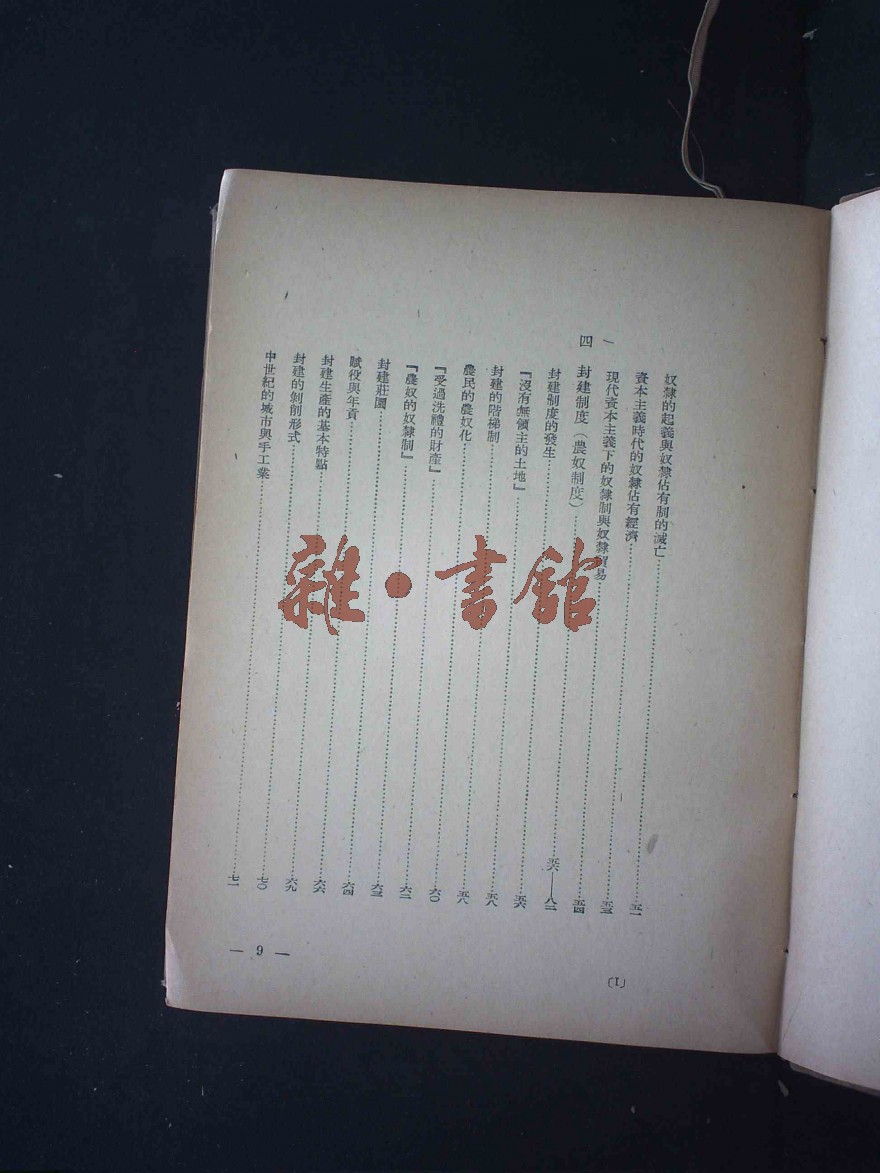 奴隸的起義與奴隸佔有制的滅亡……五一
資本主義時代的奴隸佔有經濟……五三
現代資本主義下的奴隸制與奴隸貿易……五四
四 封建制度(農奴制度)……五六——八二
封建制度的發生……五六
『沒有無領主的土地』……五八
封建的階梯制……五八
農民的農奴化……六〇
『受過洗禮的財產』……六二
『農奴的奴隸制』……六三
封建莊園……六四
賦役與年貢……六六
封建生產的基本特點……六九
封建的剝削形式……七〇
中世紀的城市與手工業……七一
— 9 —
〔I〕
雜·書館